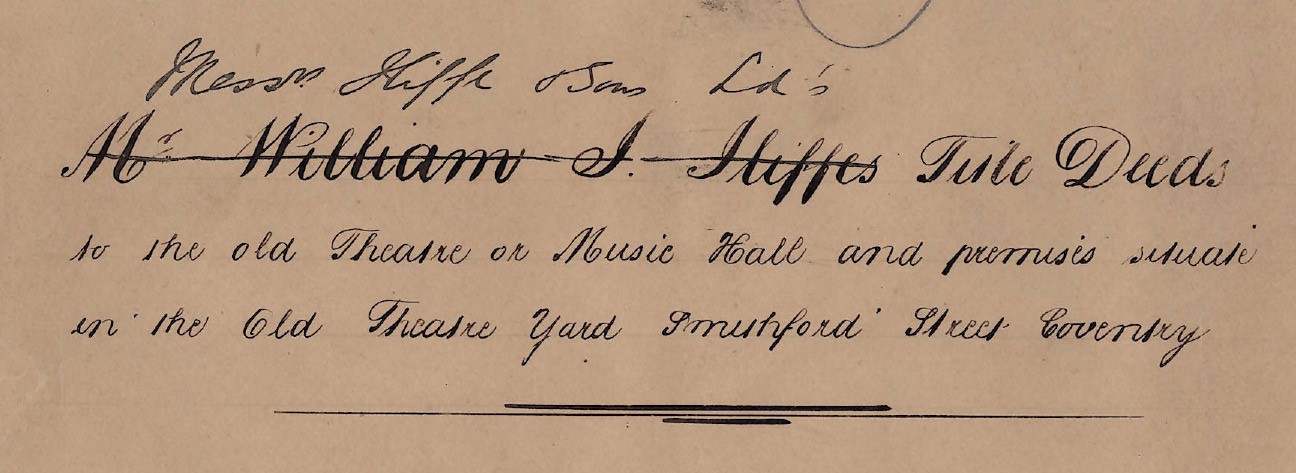 Messrs. Iliffe & Sons Ld's
Mr. William I. Iliffes Title Deeds
to the old Theatre or Music Hall and premises situate
in the Old Theatre Yard Smithford Street Coventry